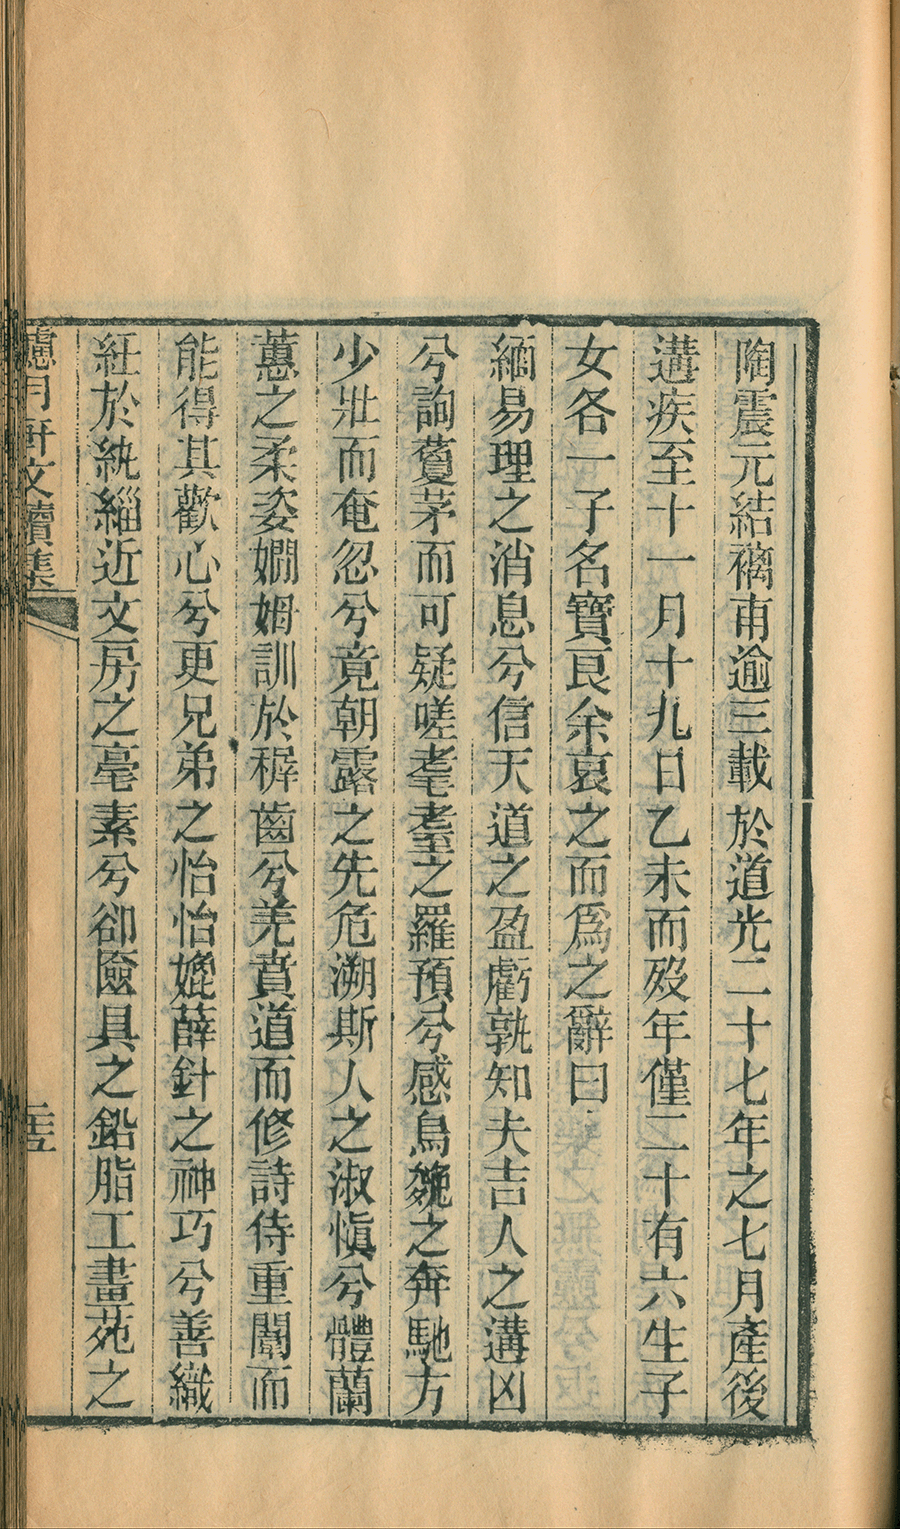 陶震元結褵甫逾三載於道光二十七年之七月產後
遘疾至十一月十九日乙未而歿年僅二十有六生子
女各一子名寶良余哀之而爲之辭曰
緬易理之消息兮信天道之盈虧孰知夫吉人之遘凶
兮詢藑茅而可疑嗟耄耋之羅預兮感烏兔之奔馳方
少壯而奄忽兮竟朝露之先危溯斯人之淑愼兮體蘭
蕙之柔姿嫺姆訓於穉齒兮羌賁道而修詩侍重闈而
能得其歡心兮更兄弟之怡怡媲薛針之神巧兮善織
紝於紈緇近文房之毫素兮卻匳具之鉛脂工畫苑之
月研文續集
二十五